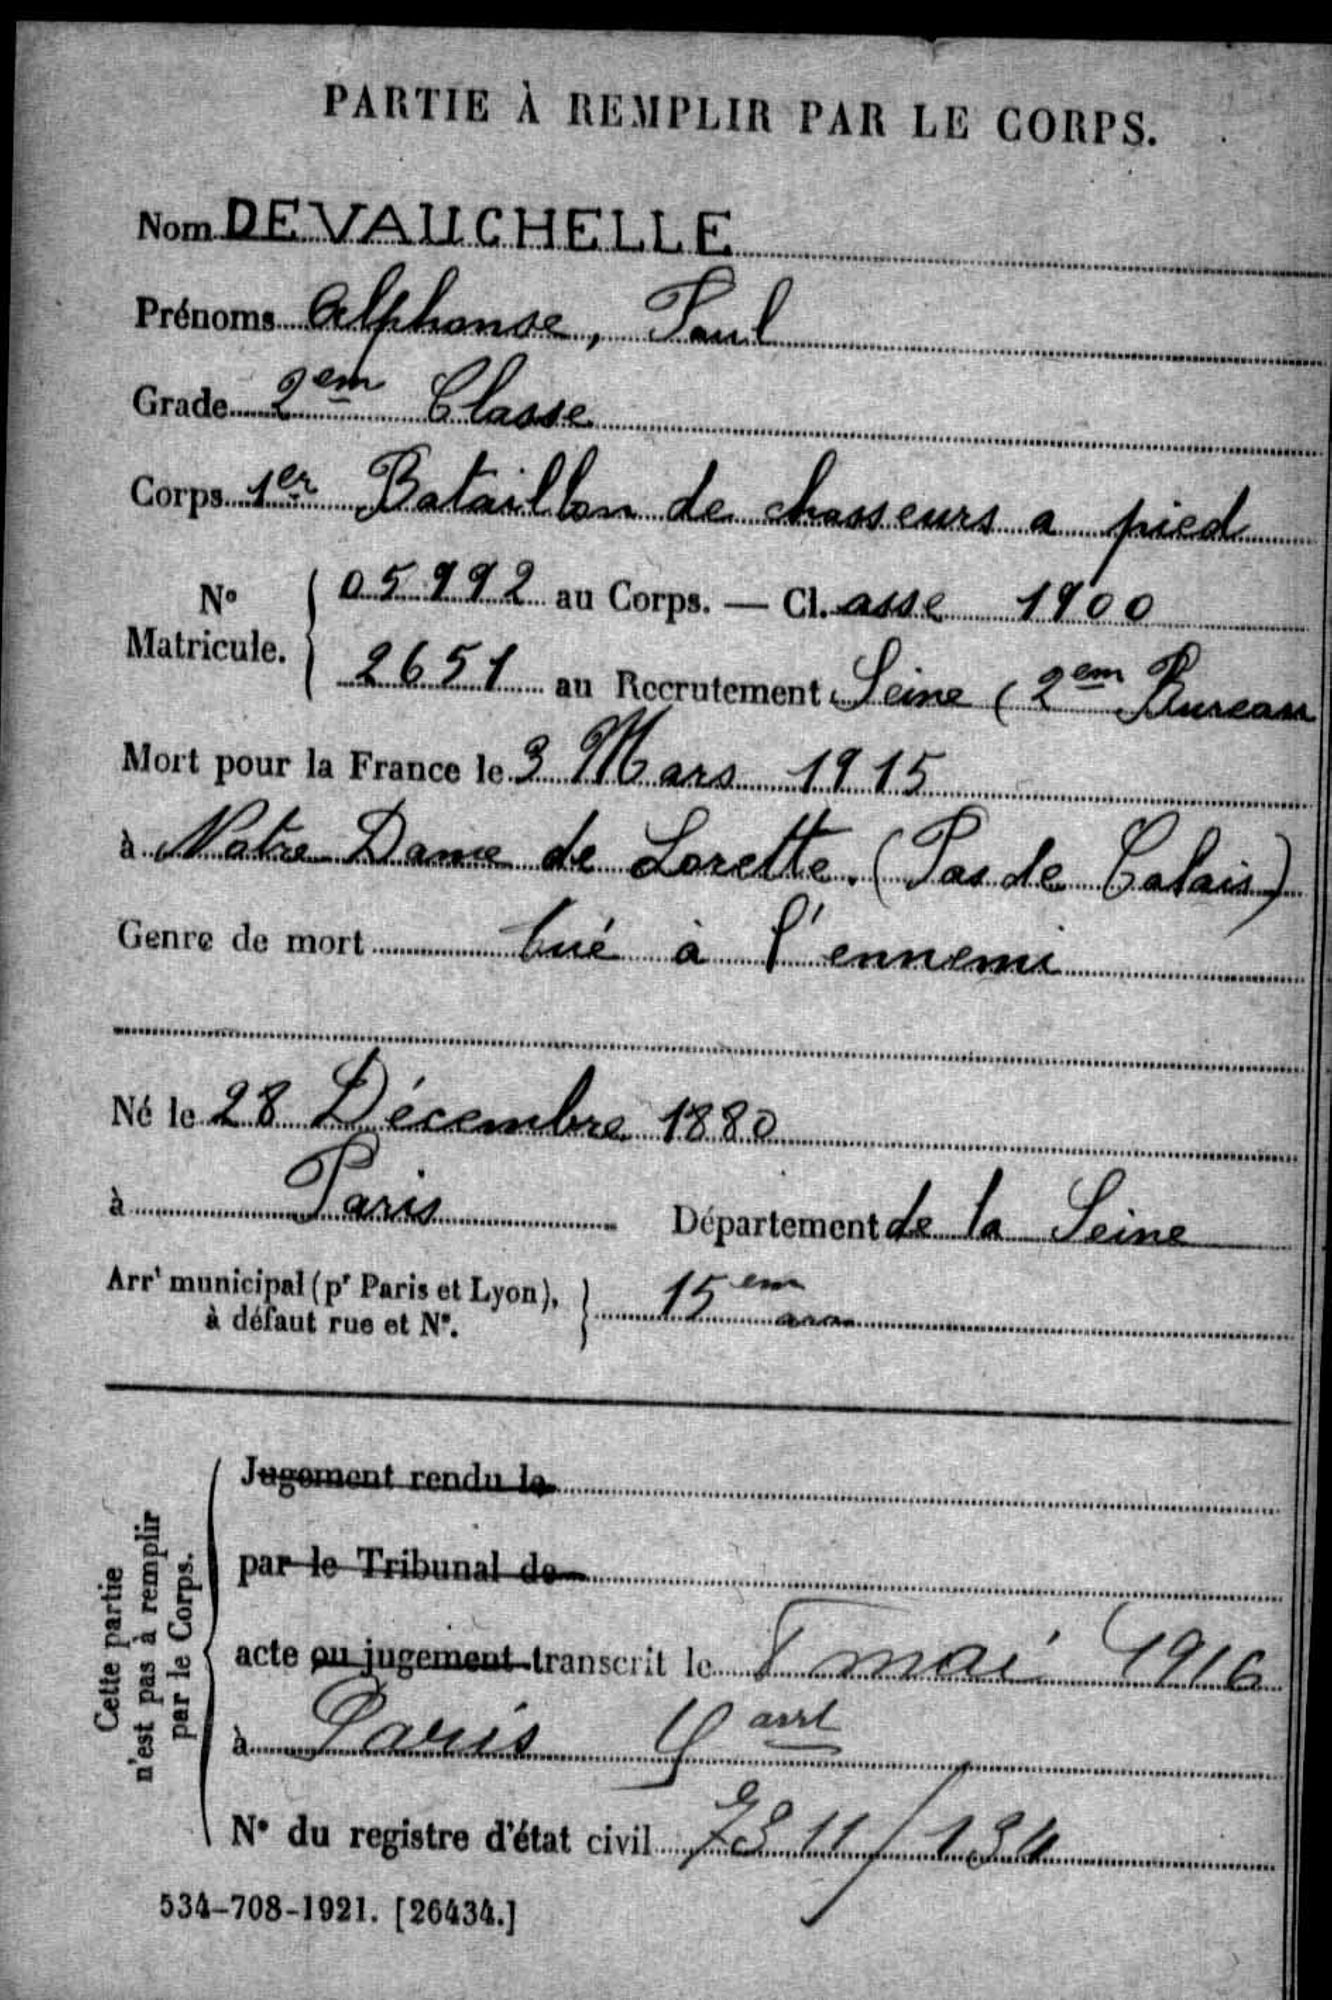 PARTIE À REMPLIR PAR LE CORPS.
Nom DEVAUCHELLE
Prénoms Alphonse, Paul
Grade 2em Classe
Corps 1er Bataillon de chasseurs a pied
N° Matricule. 05992 au Corps. — Cl. asse 1900
2651 au Recrutement Seine (2em Bureau
Mort pour la France le 3 Mars 1915
à Notre Dame de Lorette. (Pas de Calais)
Genre de mort tué à l'ennemi
Né le 28 Décembre 1880
à Paris Département de la Seine
Arrt municipal (pr Paris et Lyon), à défaut rue et N°. 15em
Cette partie n'est pas à remplir par le Corps.
Jugement rendu le
par le Tribunal de
acte ou jugement transcrit le mai 1916
à Paris arrt
N° du registre d'état civil
534-708-1921. [26434.]